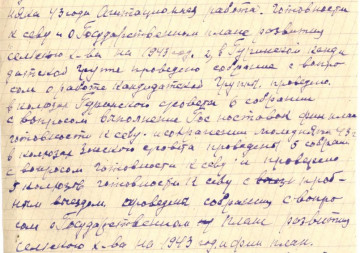 43 года Агитационная работа. готовности
к севу и о Государственном плане развития
сельского х-ва на 1943 год. 2, в Гунинской канди
датской групе проведено собрание с вопро
сом о работе кандидатской группы. проведено
в колхозах Гунинского сусовета 6 собраний
с вопросом выполнение Гос поставок фин план
готовности к севу. и сохранении молодняка 43 г.
в колхозах сельсовета проведены 5 собран
с вопросом готовности к севу и проведено
5 колхозов готовности к севу с проб-
ным выездом. проведено собрание с вопро
сом о Государственном плане развития
сельского х-ва на 1943 год и фин план.